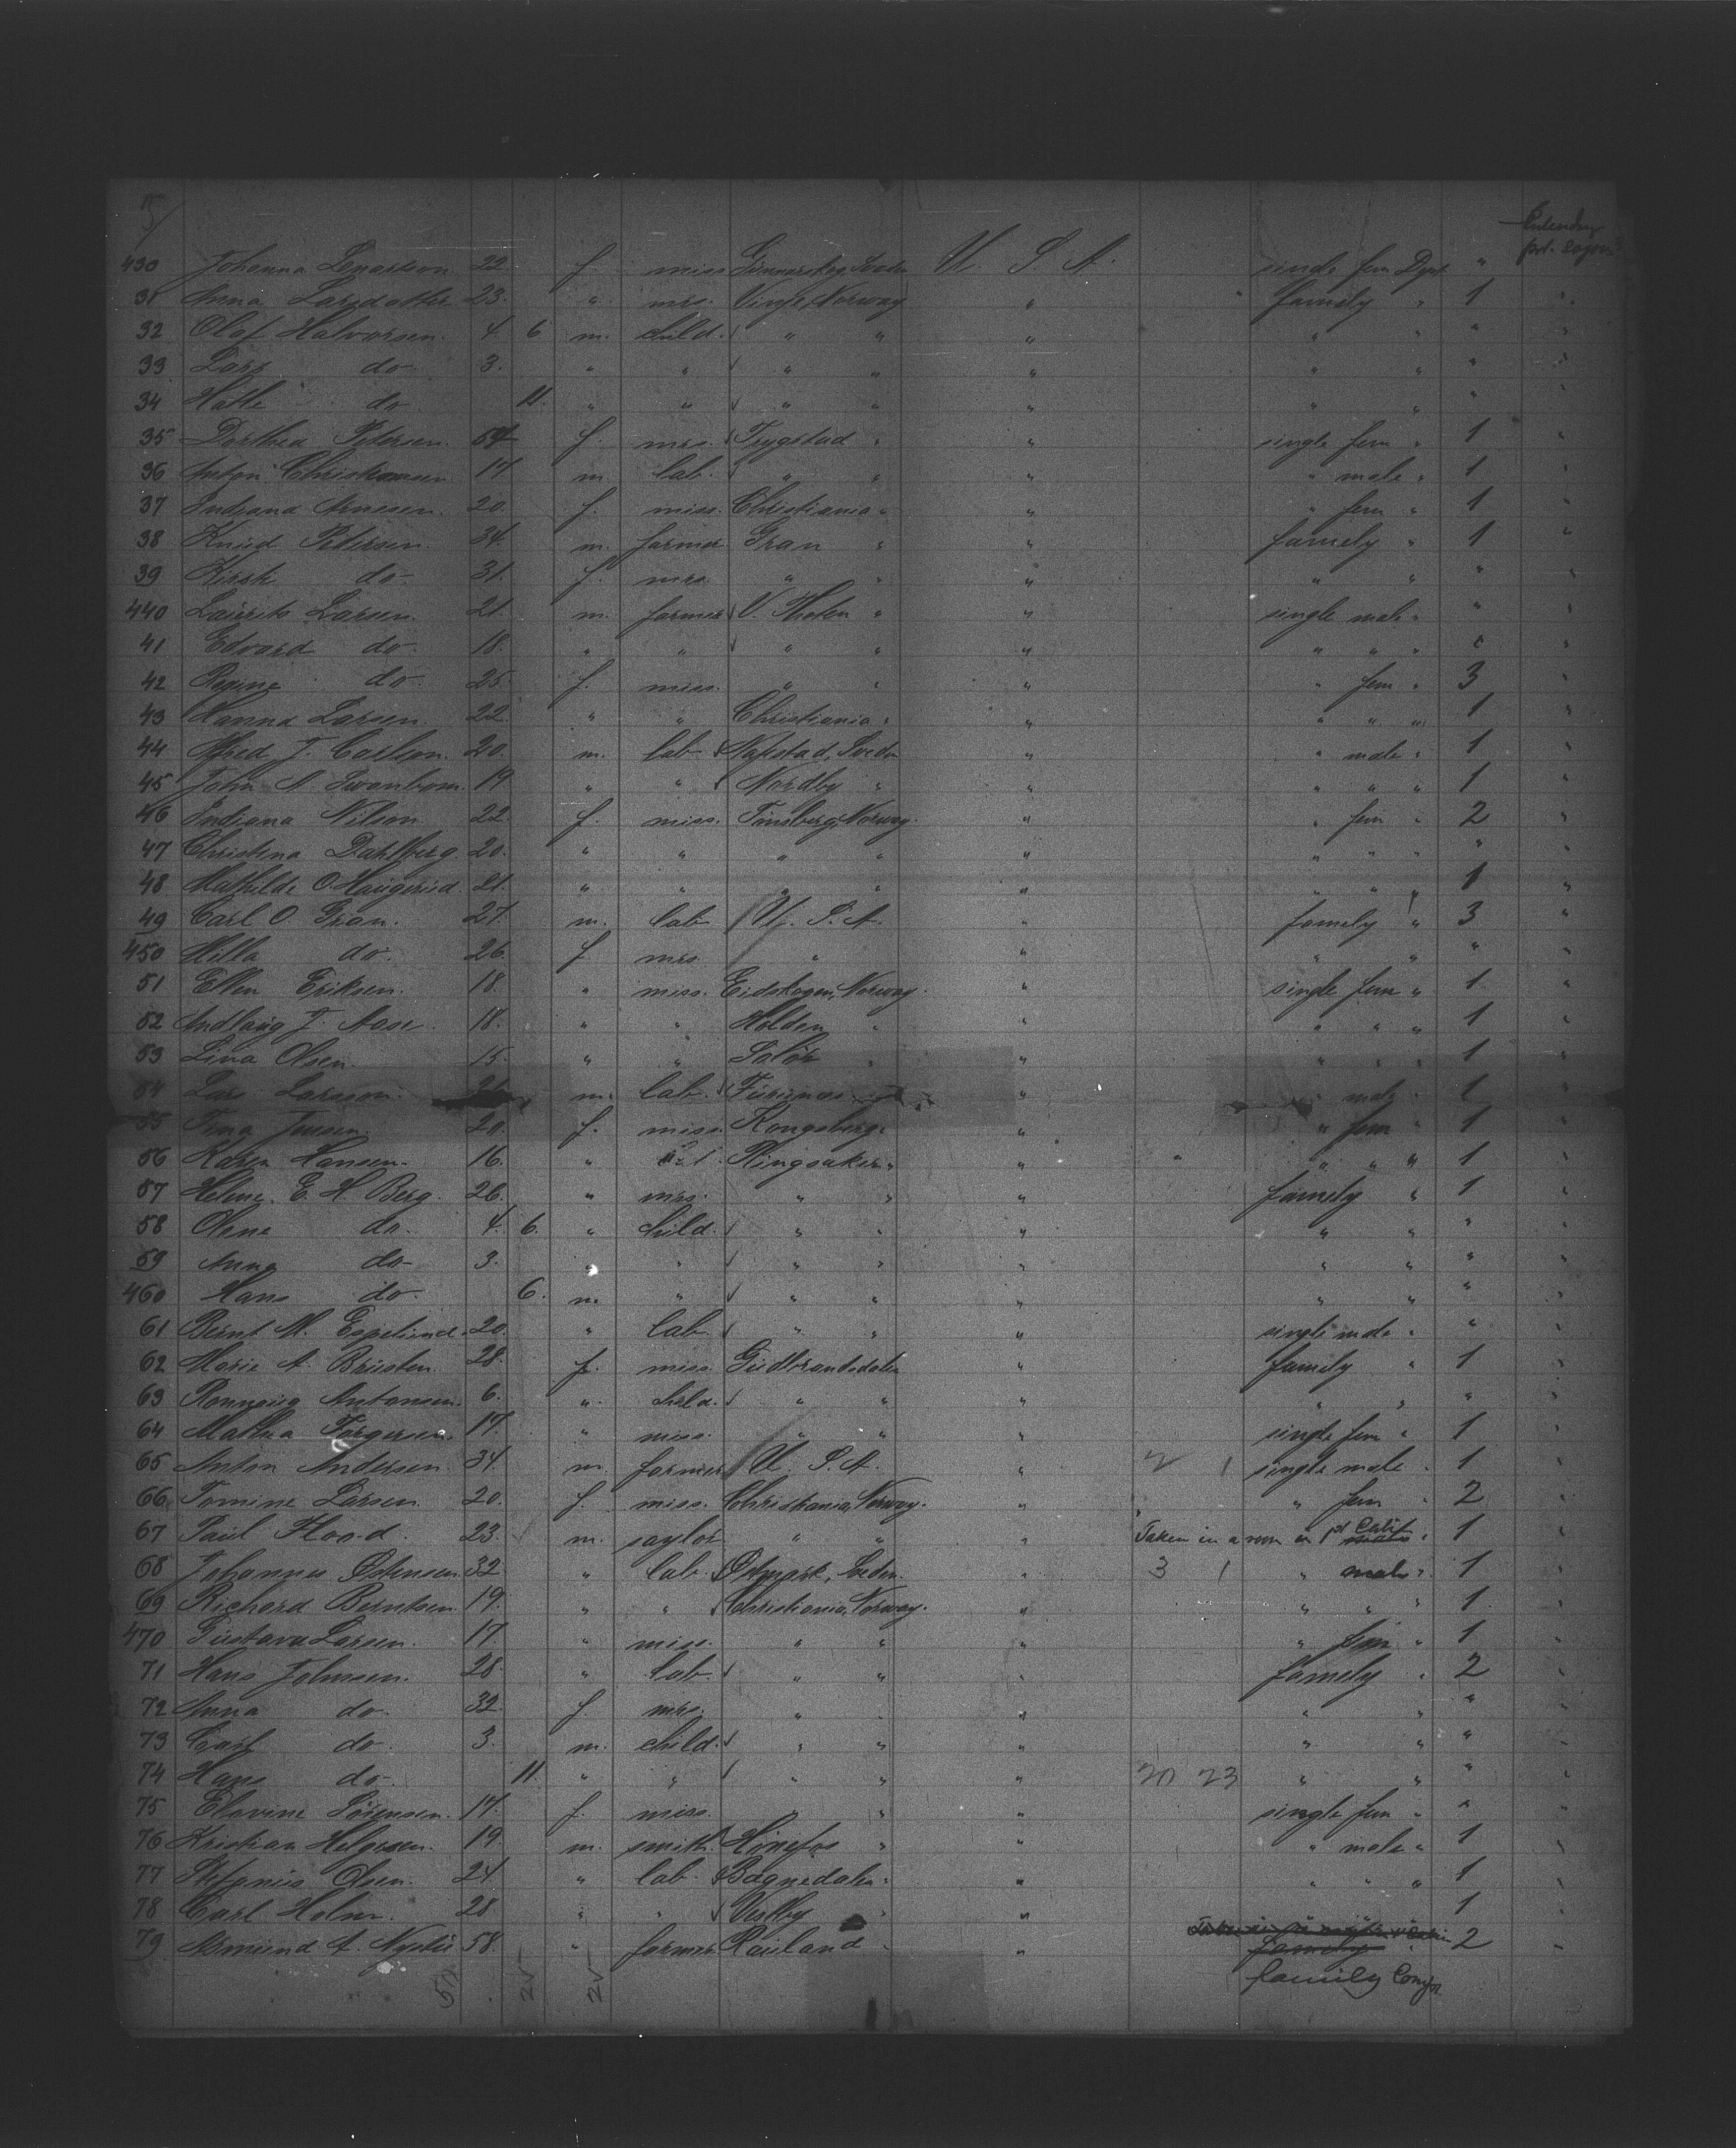 430 Johanna Lenartson 22 f miss Sweden U. S. A. single fem Dept "
31 Anna Larsdatter 23. " mrs. Vinje, Norway " family " 1 "
32 Olaf Halvorsen. 4. 6 m. child. " " " " " " "
33 Lars do 3. " " " " " " " " "
34 do 11. " " " " " " " " "
35 Dorthea Petersen. 64 f. mrs. Trygstad " " single fem " 1 "
36 Anton Christiansen 17 m lab. " " " " male " 1 "
37 Indiana Arnesen. 20. f. miss. Christiania " " " fem " 1 "
38 Knud Petersen. 34. m. farmer Gran " " famely " 1 "
39 do 31. f. mrs. " " " " " " "
440 Lauritz Larsen. 21. m. farmer V. Thoten " " single male " " "
41 Edvard do. 18. " " " " " " " " " "
42 Regine do. 25. f. miss. " " " " fem " 3 "
43 Hanna Larsen. 22. " " Christiania " " " " " 1 "
44 Alfred J. Carlson. 20. m. lab. Sweden " " male " 1 "
45 John A. Swanbom. 19 " " Nordby " " " " " 1 "
46 Indiana Nilsen 22. f. miss. Tønsberg, Norway. " " fem " 2 "
47 Christina Dahlberg. 20. " " " " " " " " " "
48 Mathilde O. Haugerud. 21. " " " " " " " " 1 "
49 Carl O. Gran. 27. m. lab U. S. A. " famely " 3 "
450 Milla do. 26. f mrs. " " " " " "
51 Ellen Eriksen. 18. " miss. Eidskogen, Norway. " single fem " 1 "
52 Andlaug T. Aase. 18. " " Holden " " " " " 1 "
53 Lina Olsen. 15. " " Solør " " " " " 1 "
54 Lars Larsson. m. lab. Furunæs " " male " 1 "
55 Tina Jensen. 20. f. miss. Kongsberg " " " fem " 1 "
56 Karen Hansen. 16. " " Ringsaker " " " " " " 1 "
57 Helene E. H. Berg. 26. " mrs. " " " famely " 1 "
58 do. 4. 6. " child. " " " " " " "
59 Anna do 3. " " " " " " " " "
460 Hans do. 6. m. " " " " " " " "
61 Bernt M. Espelund. 20. " lab " " " single male " " "
62 Marie A. 28. f. miss. Gudbrandsdalen " family " 1 "
63 Antonsen. 6. " child. " " " " " " "
64 Mathea Torgersen. 17. " miss. " " " single fem " 1 "
65 Anton Andersen 34. m. farmer U. S. A. " 2 1 single male " 1 "
66 Tomine Larsen. 20. f. miss. Christiania, Norway. " " fem " 2 "
67 Paul Flood. 23. m. saylor " " " Taken in a room in 1st " 1 "
68 Johannes Østensen. 32 " lab. Østmark, Sweden. " 3 1 " male " 1 "
69 Richard Berntsen. 19. " " Christiania, Norway. " " " " 1 "
470 Gustava Larsen. 17. " miss. " " " " fem " 1 "
71 Hans Johnsen. 28. " lab. " " " famely " 2 "
72 Anna do. 32. f mrs. " " " " " " "
73 Carl do. 3. m. child. " " " " " " "
74 Hans do. 11. " " " " " 20 23 " " " "
75 Elovine Sørensen. 17. f. miss. " " " single fem " " "
76 Kristian Helgesen. 19. m. smith. Hønefos " " " male " 1 "
77 Stefanus Olsen. 24 " lab. " " " " " 1 "
78 Carl Holm. 28 " " Vestby " " 1 "
79 Asmund A. 58. " farmer Rauland " " famely 2 "
family